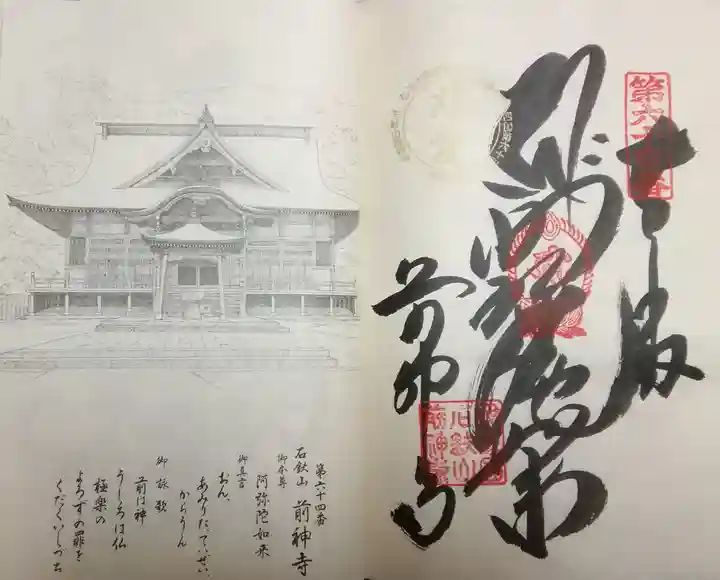 奉拝
阿弥陀如来
前神寺
第六十四番
第六十四番
石鈇山 前神寺
御本尊
阿弥陀如来
御真言
おん、
あみりたていぜい、
からうん
御詠歌
前は神
うしろは仏
極楽の
よろずの罪を
くだくいしづち